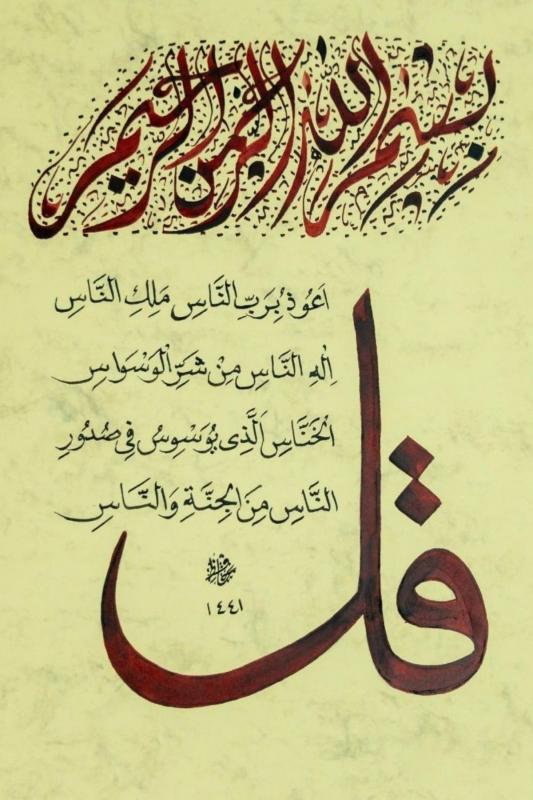 بِسْمِ اللّٰهِ الرَّحْمٰنِ الرَّحِيمِ
قل
اَعُوذُ بِرَبِّ النَّاسِ مَلِكِ النَّاسِ
اِلٰهِ النَّاسِ مِنْ شَرِّ الْوَسْوَاسِ
الْخَنَّاسِ اَلَّذِى يُوَسْوِسُ فِى صُدُورِ
النَّاسِ مِنَ الْجِنَّةِ وَالنَّاسِ
١٤٤١